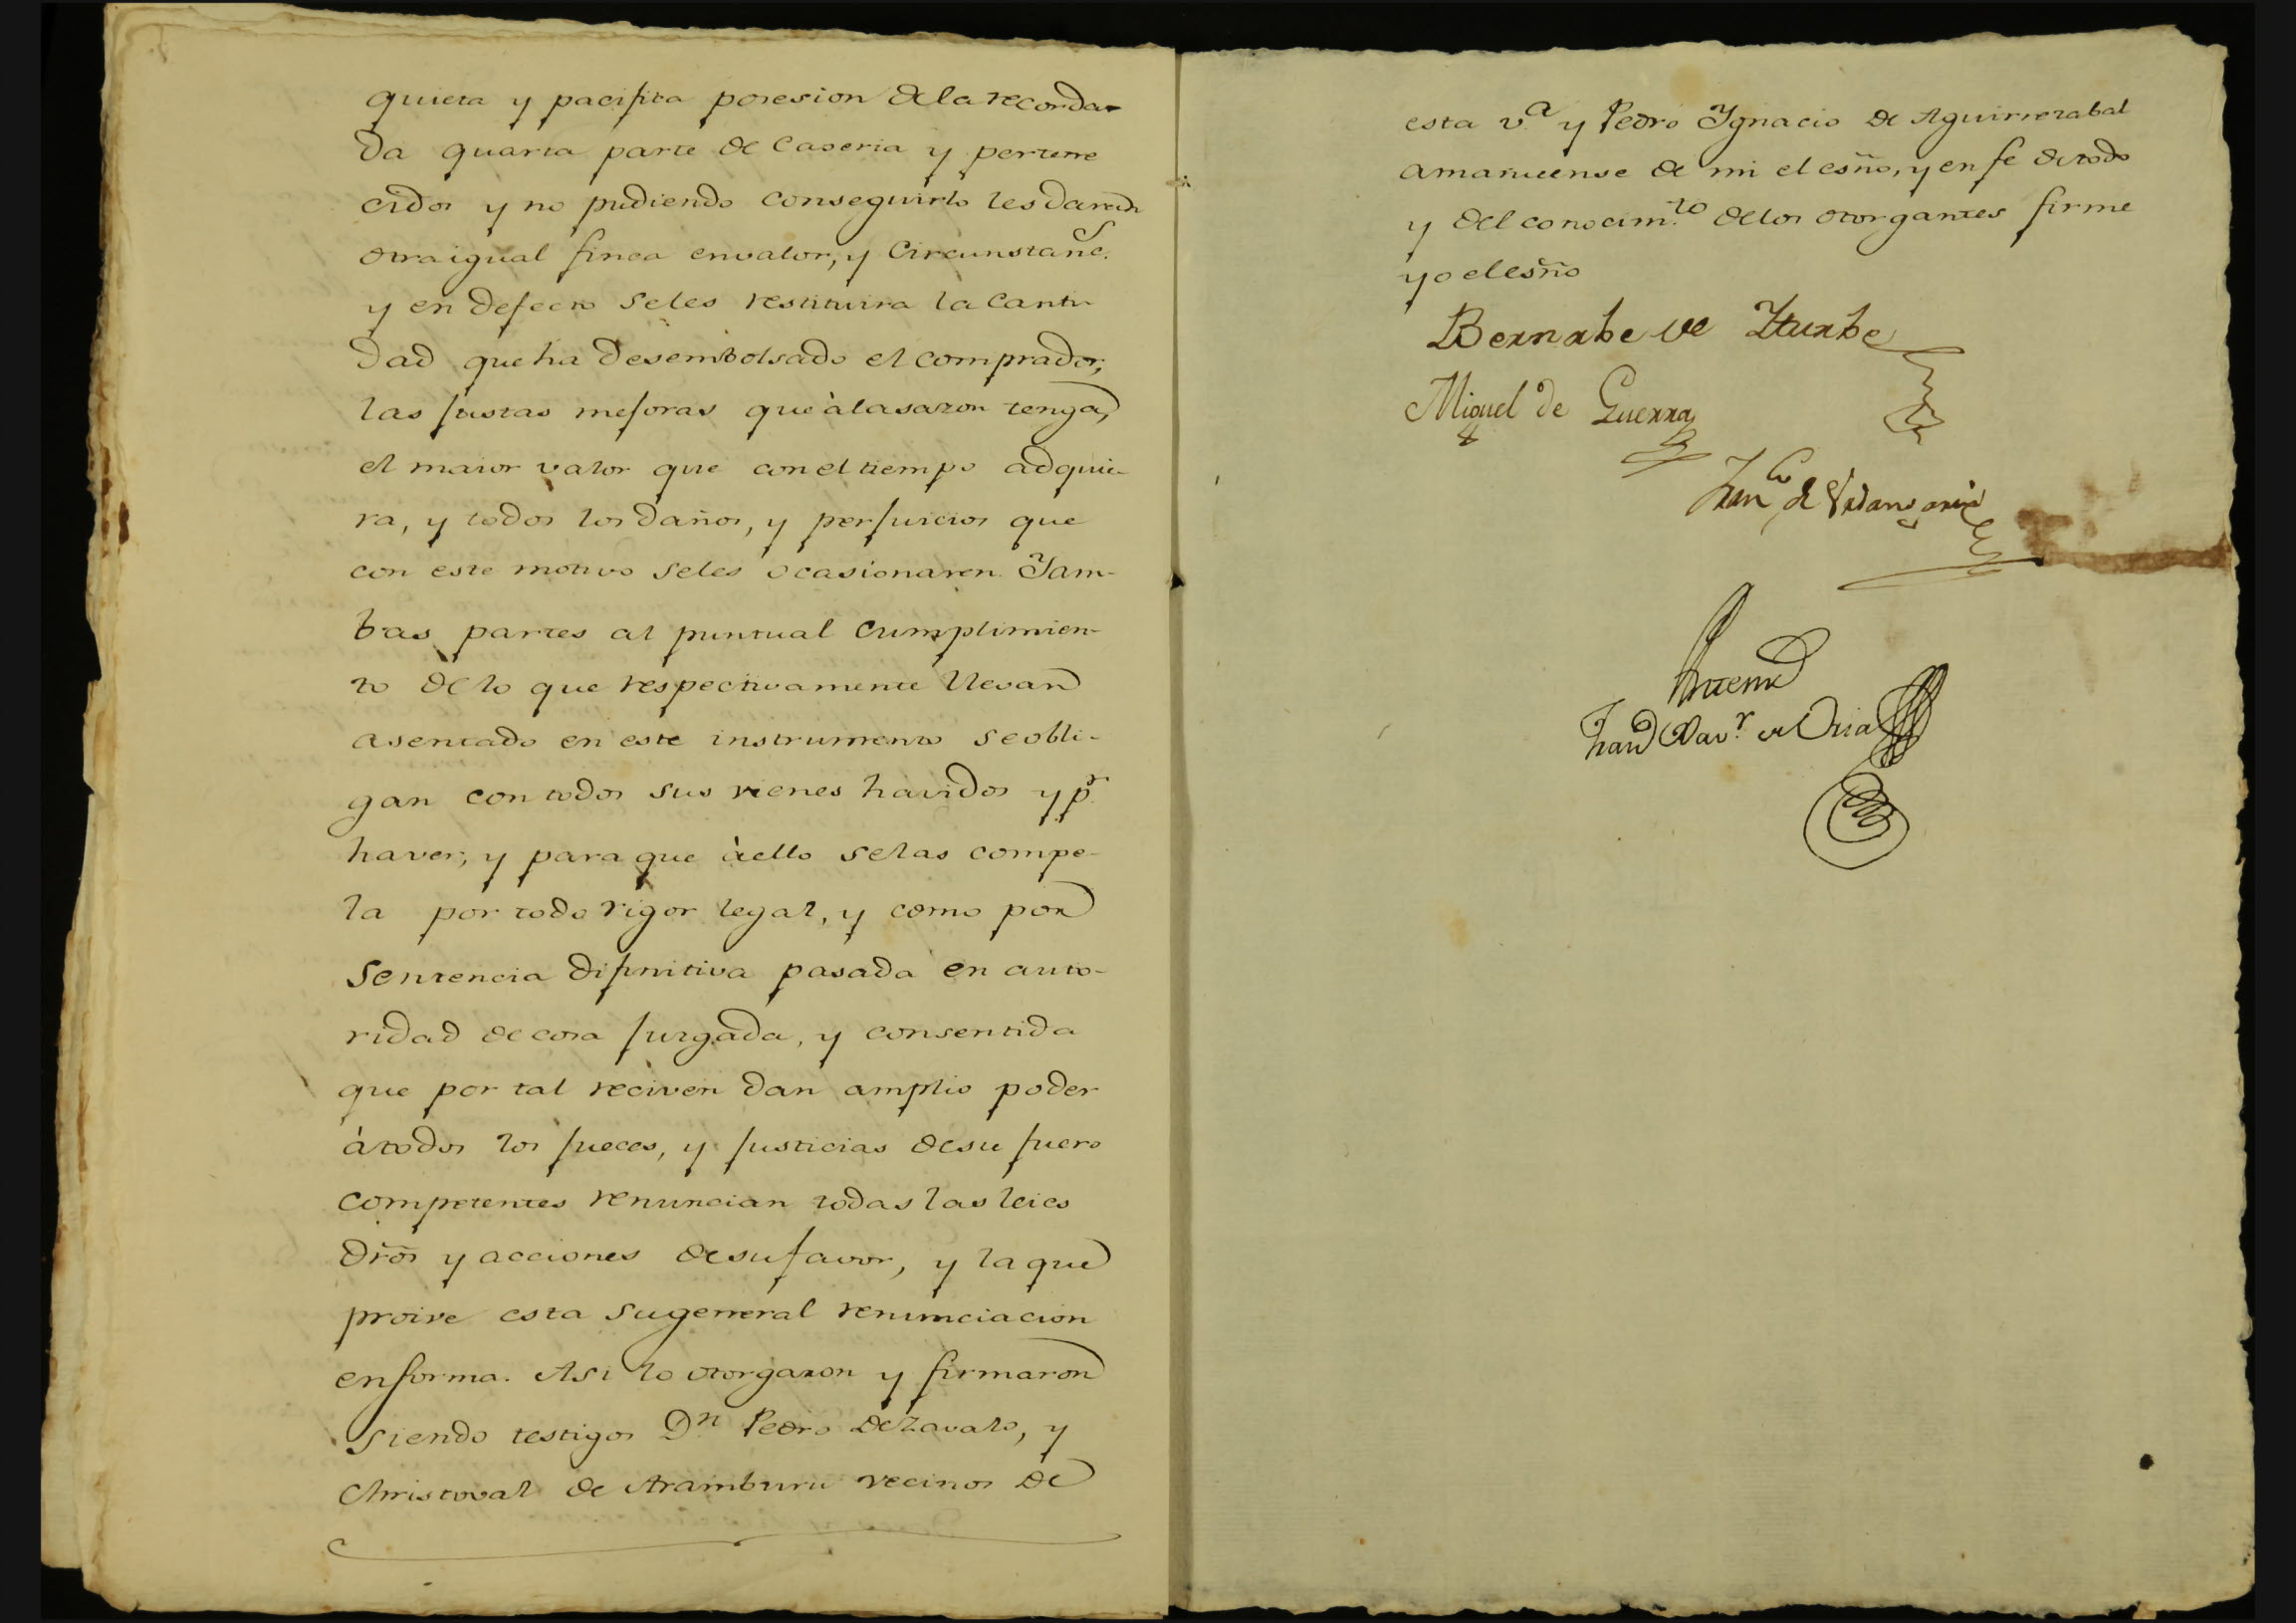 quieta y pacifica posesion de la recorda-
da quarta parte de Caseria y pertene
cidos y no pudiendo conseguirlo les daran
otra igual finca en valor, y Circunstanc.s
y en defecto se les restituira la canti-
dad que ha desembolsado el comprador,
las justas mejoras que à la sazon tenga,
el maior valor que con el tiempo adquie-
ra, y todos los daños, y perjuicios que
con este motivo se les ocasionaren. Y am-
bas partes al puntual cumplimien-
to de lo que respectivamente llevan
asentado en este instrumento se obli-
gan con todos sus vienes havidos y p.r
haver, y para que à ello se las compe-
la por todo rigor legal, y como por
Sentencia difinitiva pasada en auto-
ridad de cosa juzgada, y consentida
que por tal reciven dan amplio poder
à todos los jueces, y justicias de su fuero
competentes renuncian todas las leies
dr̃os y acciones de su favor, y la que
proive esta su general renunciacion
en forma. Asi lo otorgaron y firmaron
siendo testigos D.n Pedro de Zavalo, y
Christoval de Aramburu vecinos de
esta v.a y Pedro Ygnacio de Aguirrezabal
amanuense de mi el esño, y en fe de todo
y del conocim.to de los otorgantes firme
yo el esño
Bernabe de Yturbe
Miguel de Guerra
Fran.co de
Antemi
Fran Xav.r de Oria